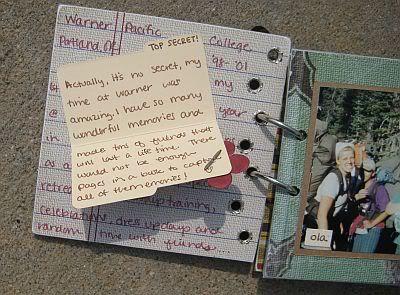 Warner Pacific
College
Portland, OR
'98-'01
TOP SECRET!
Actually, it's no secret, my
time at Warner was
amazing. I have so many
wonderful memories and
made tons of friends that
will last a life time. There
would not be enough
pages in a book to capture
all of the memories!
my
my
year
@
in
as a
retreats training,
celebrations, dress up days and
random time with friends...
ola